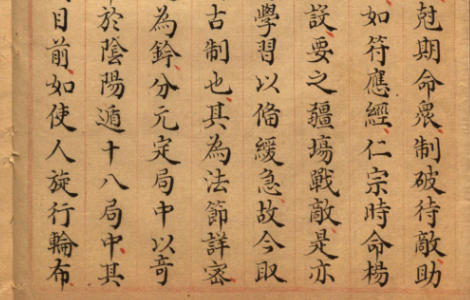 尅期命衆制破待敵助
如符應經仁宗時命楊
設要之疆塲戰敵是亦
學習以俻緩急故今取
古制也其為法節詳宻
為鈐分元定局中以竒
於陰陽遁十八局中其
目前如使人旋行輪布